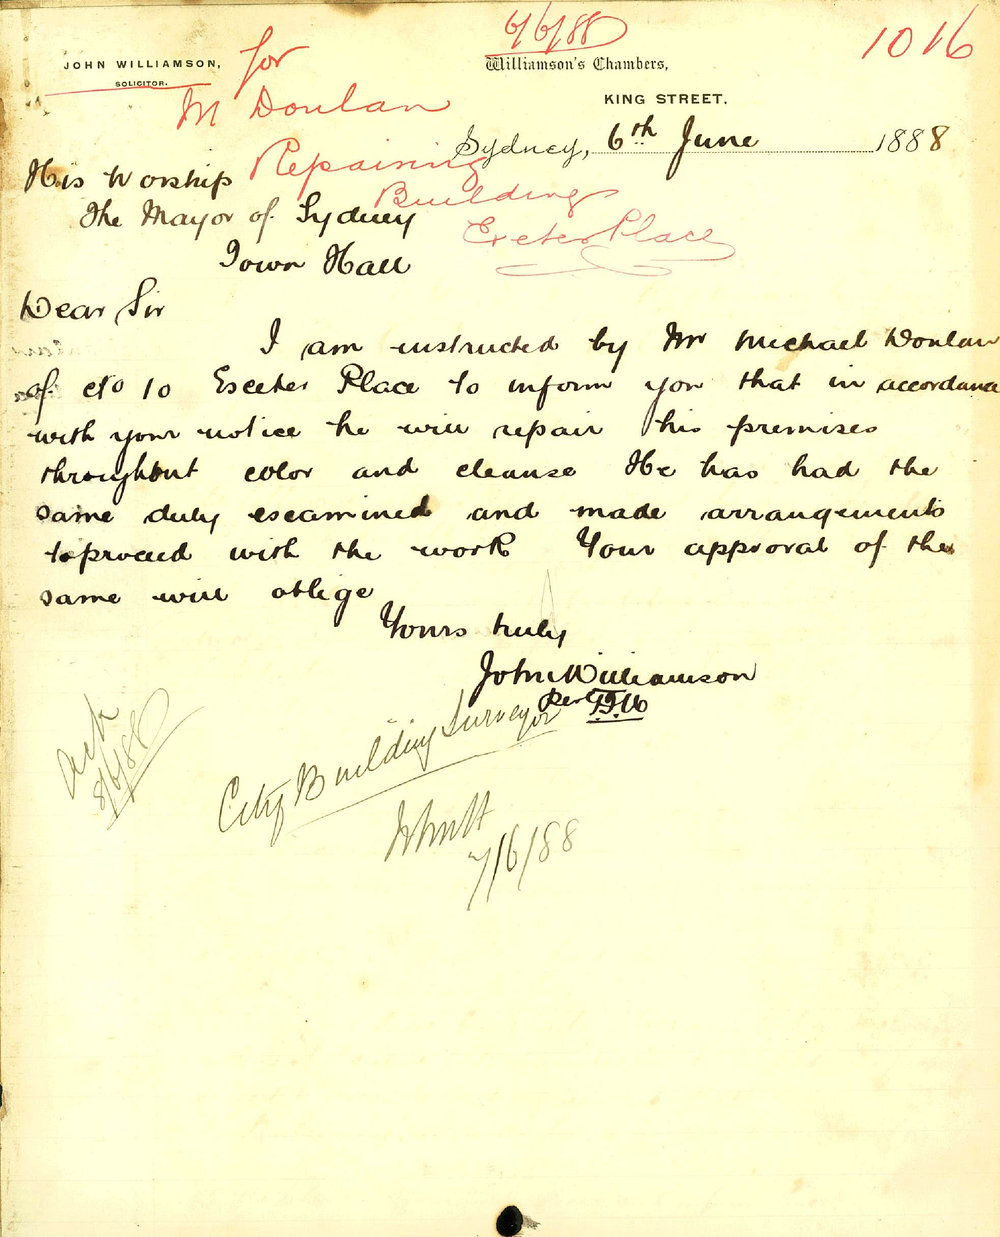 6/6/88
1016
JOHN WILLIAMSON,
SOLICITOR.
for
Williamson's Chambers,
KING STREET.
M Donlan
Sydney, 6th June 1888
Repairing
His Worship
Buildings
The Mayor of Sydney
Exeter Place
Town Hall
Dear Sir
I am instructed by Mr Michael Donlan
of No 10 Exeter Place to inform you that in accordance
with your notice he will repair his premises
throughout color and cleanse He has had the
same duly examined and made arrangements
to proceed with the work Your approval of the
same will oblige
Yours truly
John Williamson
per
City Building Surveyor
8/6/88
7/6/88